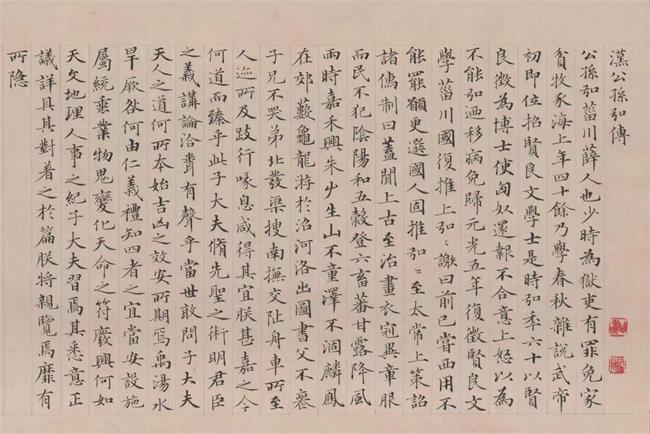 漢公孫弘傳
公孫弘菑川薛人也少時為獄吏有罪免家
貧牧豕海上年四十餘乃學春秋雜說武帝
初即位招賢良文學士是時弘年六十以賢
良徵為博士使匈奴還報不合意上怒以為
不能弘迺移病免歸元光五年復徵賢良文
學菑川國復推上弘〻謝曰前已嘗西用不
能罷願更選國人固推弘〻至太常上策詔
諸儒制曰蓋聞上古至治畫衣冠異章服
而民不犯陰陽和五穀登六畜蕃甘露降風
雨時嘉禾興朱屮生山不童澤不涸麟鳳
在郊藪龜龍游於沼河洛出圖書父不喪
子兄不哭弟北發渠搜南撫交阯舟車所至
人迹所及跂行喙息咸得其宜朕甚嘉之今
何道而臻乎此子大夫脩先聖之術明君臣
之義講論洽聞有聲乎當世敢問子大夫
天人之道何所本始吉凶之效安所期焉禹湯水
旱厥咎何由仁義禮知四者之宜當安設施
屬統垂業物鬼變化天命之符廢興何如
天文地理人事之紀子大夫習焉其悉意正
議詳具其對著之於篇朕將親覽焉靡有
所隱